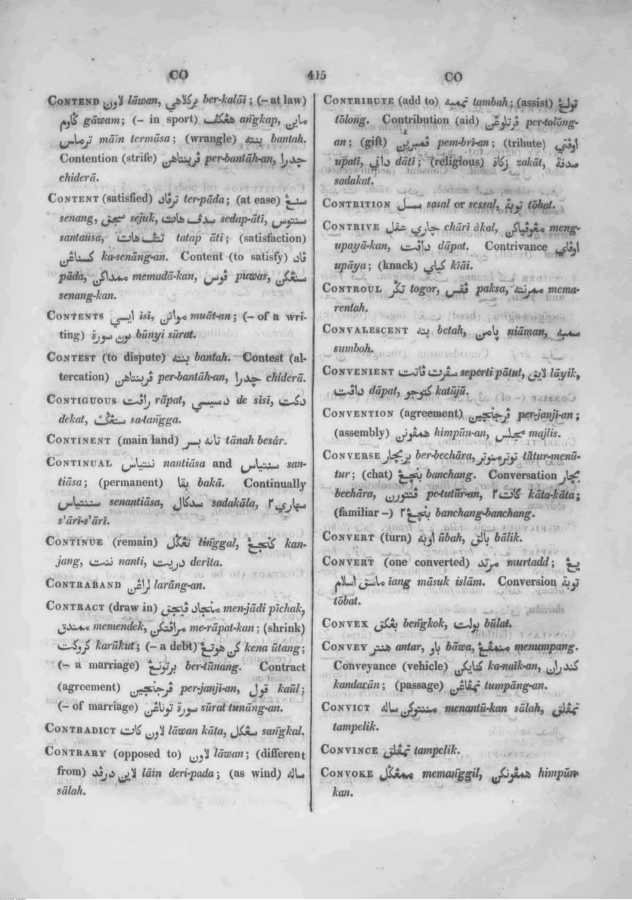 CO 415 CO
CONTEND لاون lāwan, بركلاهي ber-kalāi; (– at law)
گاوم gāwam; (– in sport) هڠكف ang̃kap, ماين
ترماس māin termāsa; (wrangle) بنته bantah.
Contention (strife) ڤربنتاهن per-bantāh-an, چدرا
chiderā.
CONTENT (satisfied) ترڤاد ter-pāda; (at ease) سنڠ
senang, سجق sejuk, سدڤ هات sedap-āti, سنتوس
santausa, تتڤ هات tatap āti; (satisfaction)
كسناڠن ka-senāng-an. Content (to satisfy) ڤاد
pāda, ممداكن memadā-kan, ڤوس puwas, سنڠكن
senang-kan.
CONTENTS ايسي isi, مواتن muāt-an; (– of a wri-
ting) بون سورة būnyi sūrat.
CONTEST (to dispute) بنته bantah. Contest (al-
tercation) ڤربنتاهن per-bantāh-an, چدرا chiderā.
CONTIGUOUS راڤت rāpat, دسيسي de sisi, دكت
dekat, ستڠگ sa-tang̃ga.
CONTINENT (main land) تانه بسر tānah besār.
CONTINUAL ننتياس nantiāsa and سنتياس san-
tiāsa; (permanent) بقا bakā. Continually
سننتياس senantiāsa, سدكال sadakāla, سهاري٢
s'āri-s'āri.
CONTINUE (remain) تڠگل ting̃gal, كنجڠ kan-
jang, ننت nanti, دريت derita.
CONTRABAND لراڠن larāng-an.
CONTRACT (draw in) منجاد ڤيچق men-jādi pichak,
ممندق memendek, مراڤتكن me-rāpat-kan; (shrink)
كروكت karūkut; (– a debt) كن هوتڠ kena ūtang;
(– a marriage) برتونڠ ber-tūnang. Contract
(agreement) ڤرجنجين per-janji-an, قول kaūl;
(– of marriage) سورة توناڠن sūrat tunāng-an.
CONTRADICT لاون كات lāwan kāta, سڠكل sang̃kal.
CONTRARY (opposed to) لاون lāwan; (different
from) لاين درڤد lāin deri-pada; (as wind) ساله
sālah.
CONTRIBUTE (add to) تمبه tambah; (assist) تولڠ
tōlong. Contribution (aid) ڤرتولڠن per-tōlong-
an; (gift) ڤمبرين pem-brī-an; (tribute) اوڤتي
upati, داتي dāti; (religious) زكاة zakāt, صدقة
sadakat.
CONTRITION سسل sasal or sessal, توبة tōbat.
CONTRIVE چاري عقل chāri ākal, مڠوڤياكن meng-
upayā-kan, داڤت dāpat. Contrivance اوڤاي
upāya; (knack) كياي kiāi.
CONTROUL تگر togor, ڤقس paksa, ممرنته mema-
rentah.
CONVALESCENT بته betah, ڽامن niāman, سمبه
sumboh.
CONVENIENT سڤرت ڤاتت seperti pātut, لايق lāyik,
داڤت dāpat, كتوجو katūjū.
CONVENTION (agreement) ڤرجنجين per-janji-an;
(assembly) همڤونن himpūn-an, مجلس majlis.
CONVERSE بربچار ber-bechāra, توترمنوتر tūtur-menū-
tur; (chat) بنچڠ banchang. Conversation بچار
bechāra, ڤتوتورن pe-tutūr-an, كات٢ kāta-kāta;
(familiar –) بنچڠ٢ banchang-banchang.
CONVERT (turn) اوبه ūbah, بالق bālik.
CONVERT (one converted) مرتد murtadd; يڠ
ماسق اسلام iang māsuk islām. Conversion توبة
tōbat.
CONVEX بڠكق beng̃kok, بولت būlat.
CONVEY هنتر antar, باو bāwa, منمڤڠ menumpang.
Conveyance (vehicle) كنايكن ka-naīk-an, كندران
kandarān; (passage) تمڤاڠن tumpāng-an.
CONVICT منتوكن ساله menantū-kan sālah, تمڤلق
tampelik.
CONVINCE تمڤلق tampelik.
CONVOKE ممڠگل memang̃gil, همڤونكن himpūn-
kan.